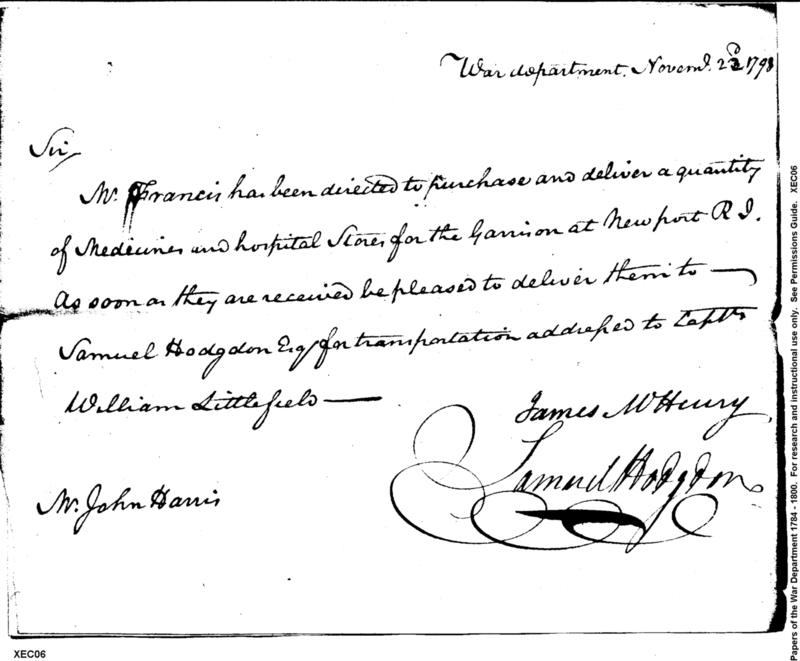 War department. Novemr. 23d 1798
Sir
Mr. Francis has been directed to purchase and deliver a quantity
of Medicines and hospital Stores for the Garrison at Newport R I.
As soon as they are received be pleased to deliver them to —
Samuel Hodgdon Esqr for transportation addressed to Captn
William Littlefield —
James McHenry
Samuel Hodgdon
Mr. John Harris
XEC06
Papers of the War Department 1784 - 1800. For research and instructional use only. See Permissions Guide. XEC06